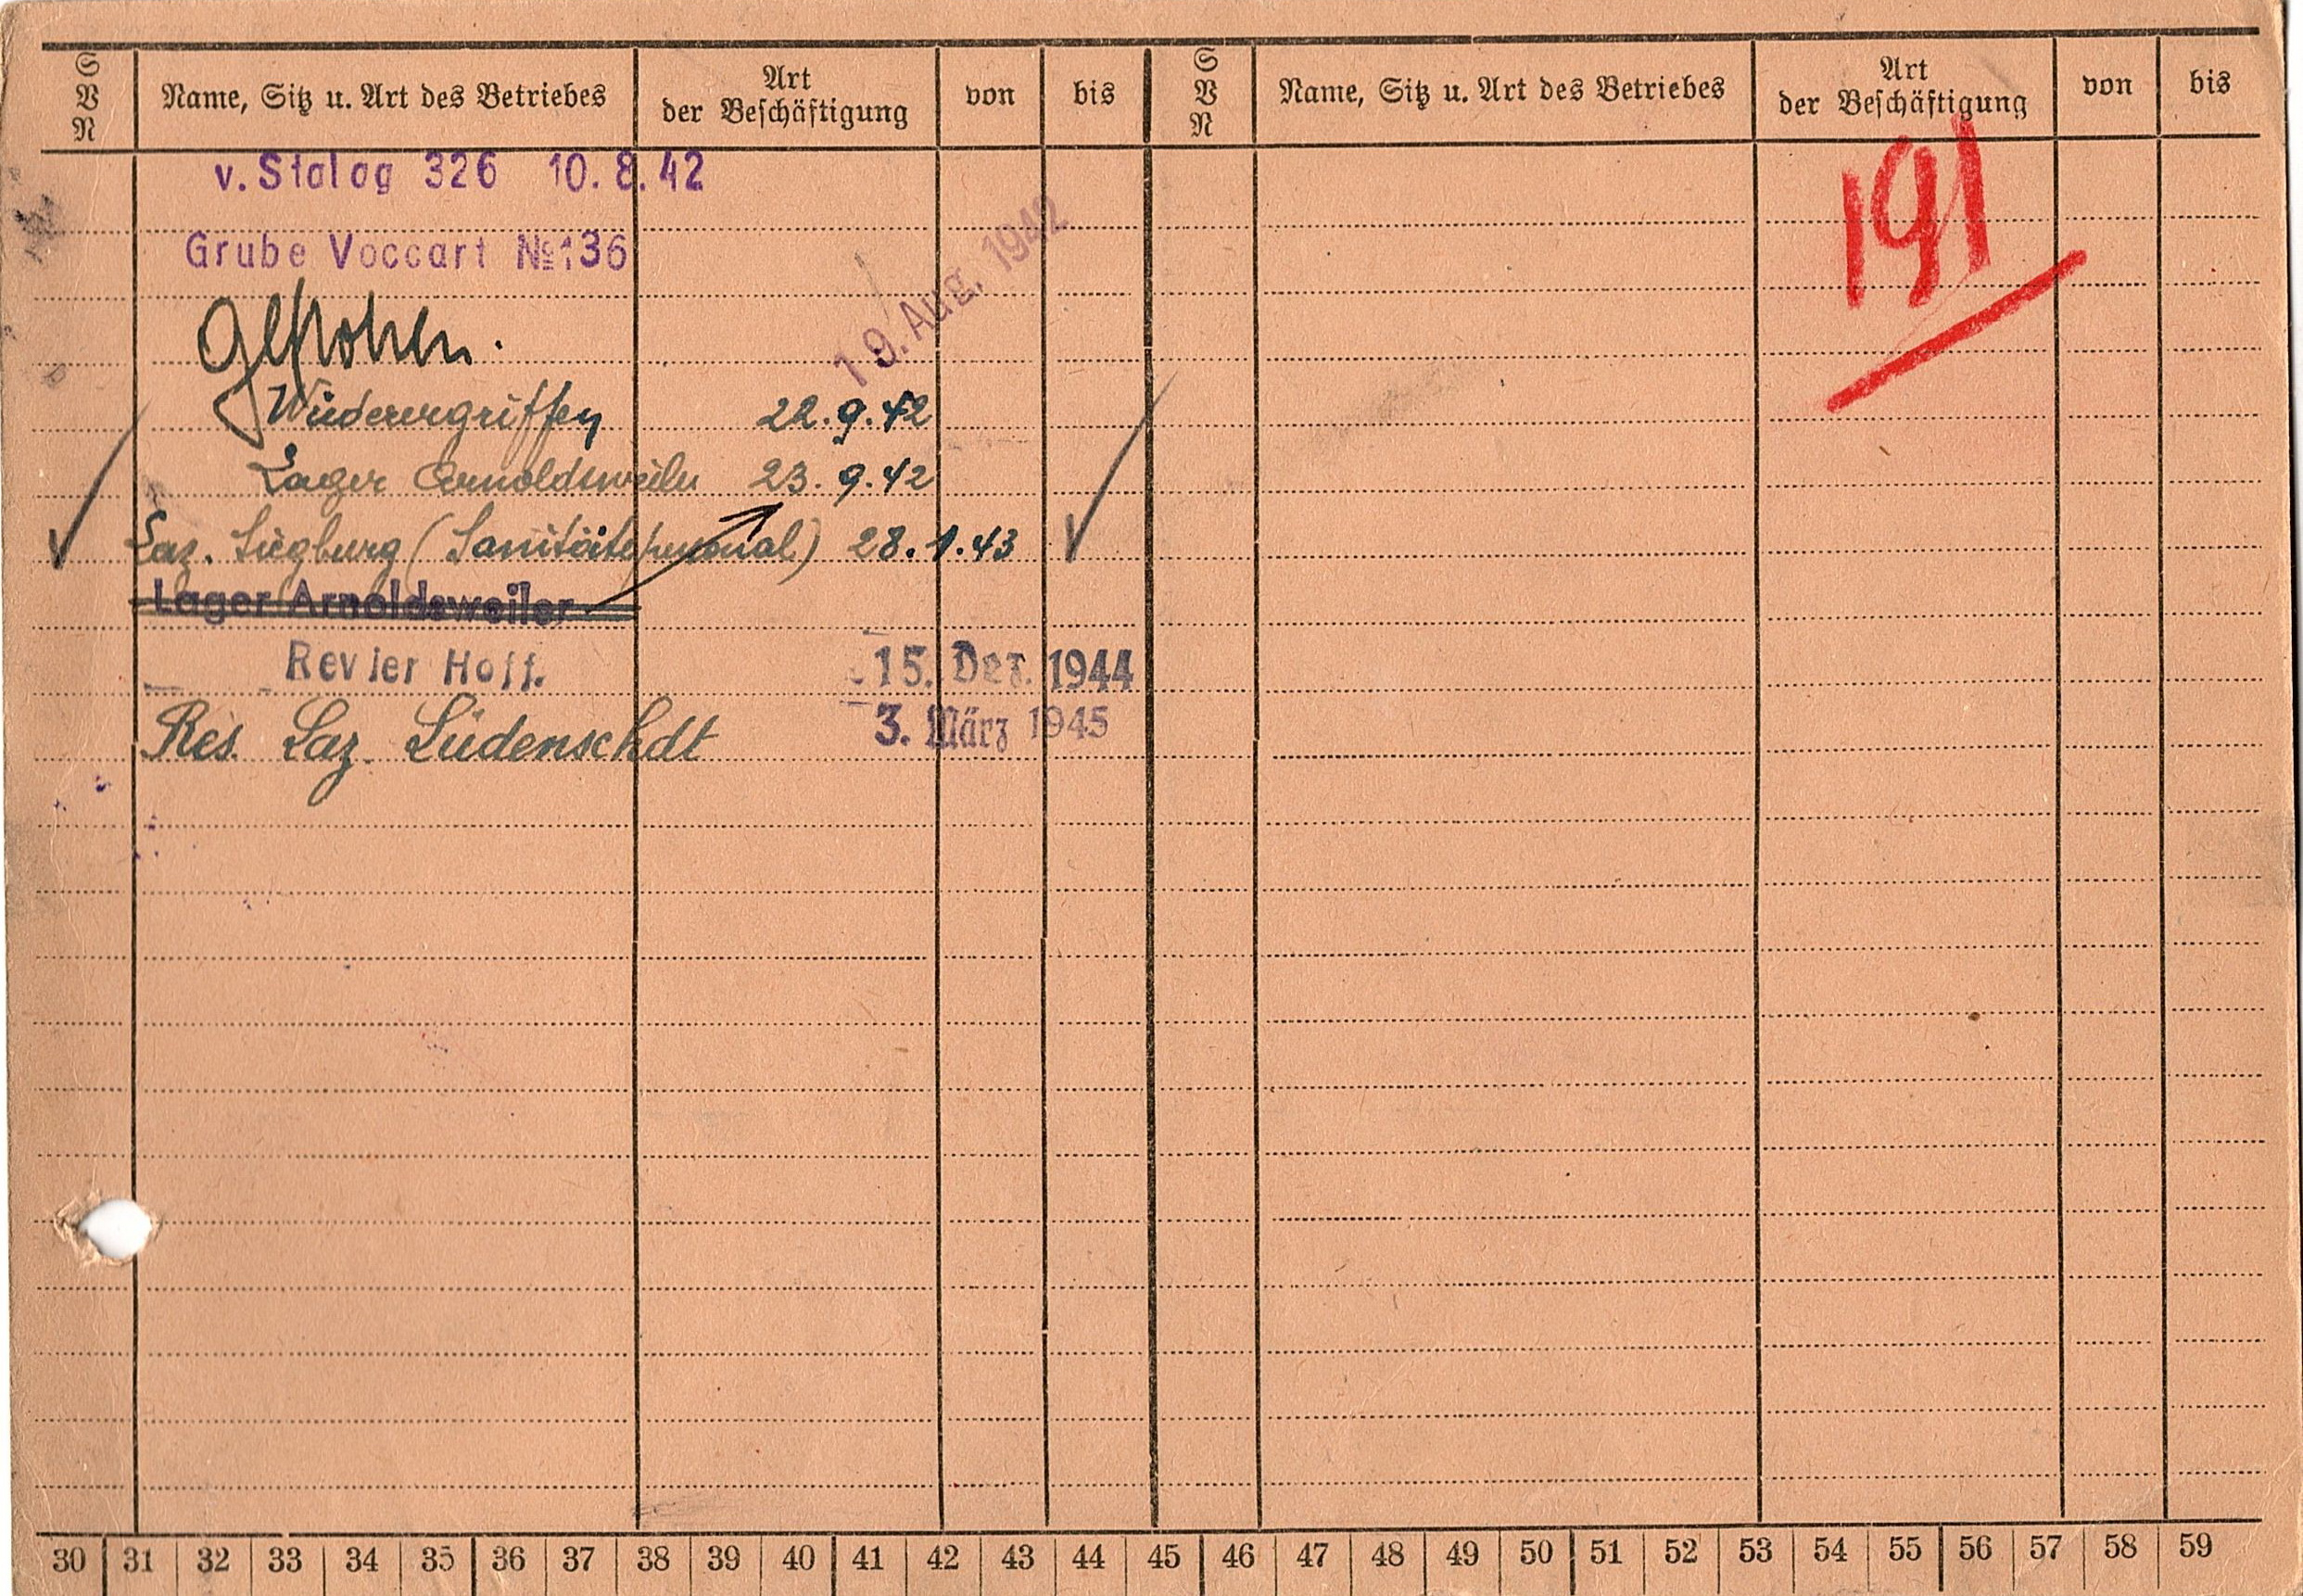 S V N Name, Sitz u. Art des Betriebes Art der Beschäftigung von bis S V N Name, Sitz u. Art des Betriebes Art der Beschäftigung von bis
v. Stalag 326 10. 8. 42
191
Grube Voccart № 136
19. Aug. 1942
Geflohen.
Wiederergriffen 22.9.42
Lager Arnoldsweiler 23.9.42
Laz. Siegburg (Sanitätspersonal) 28.1.43
Lager Arnoldsweiler
Revier Hoff. 15. Dez. 1944
3. März 1945
Res. Laz. Lüdenschdt
30 31 32 33 34 35 36 37 38 39 40 41 42 43 44 45 46 47 48 49 50 51 52 53 54 55 56 57 58 59